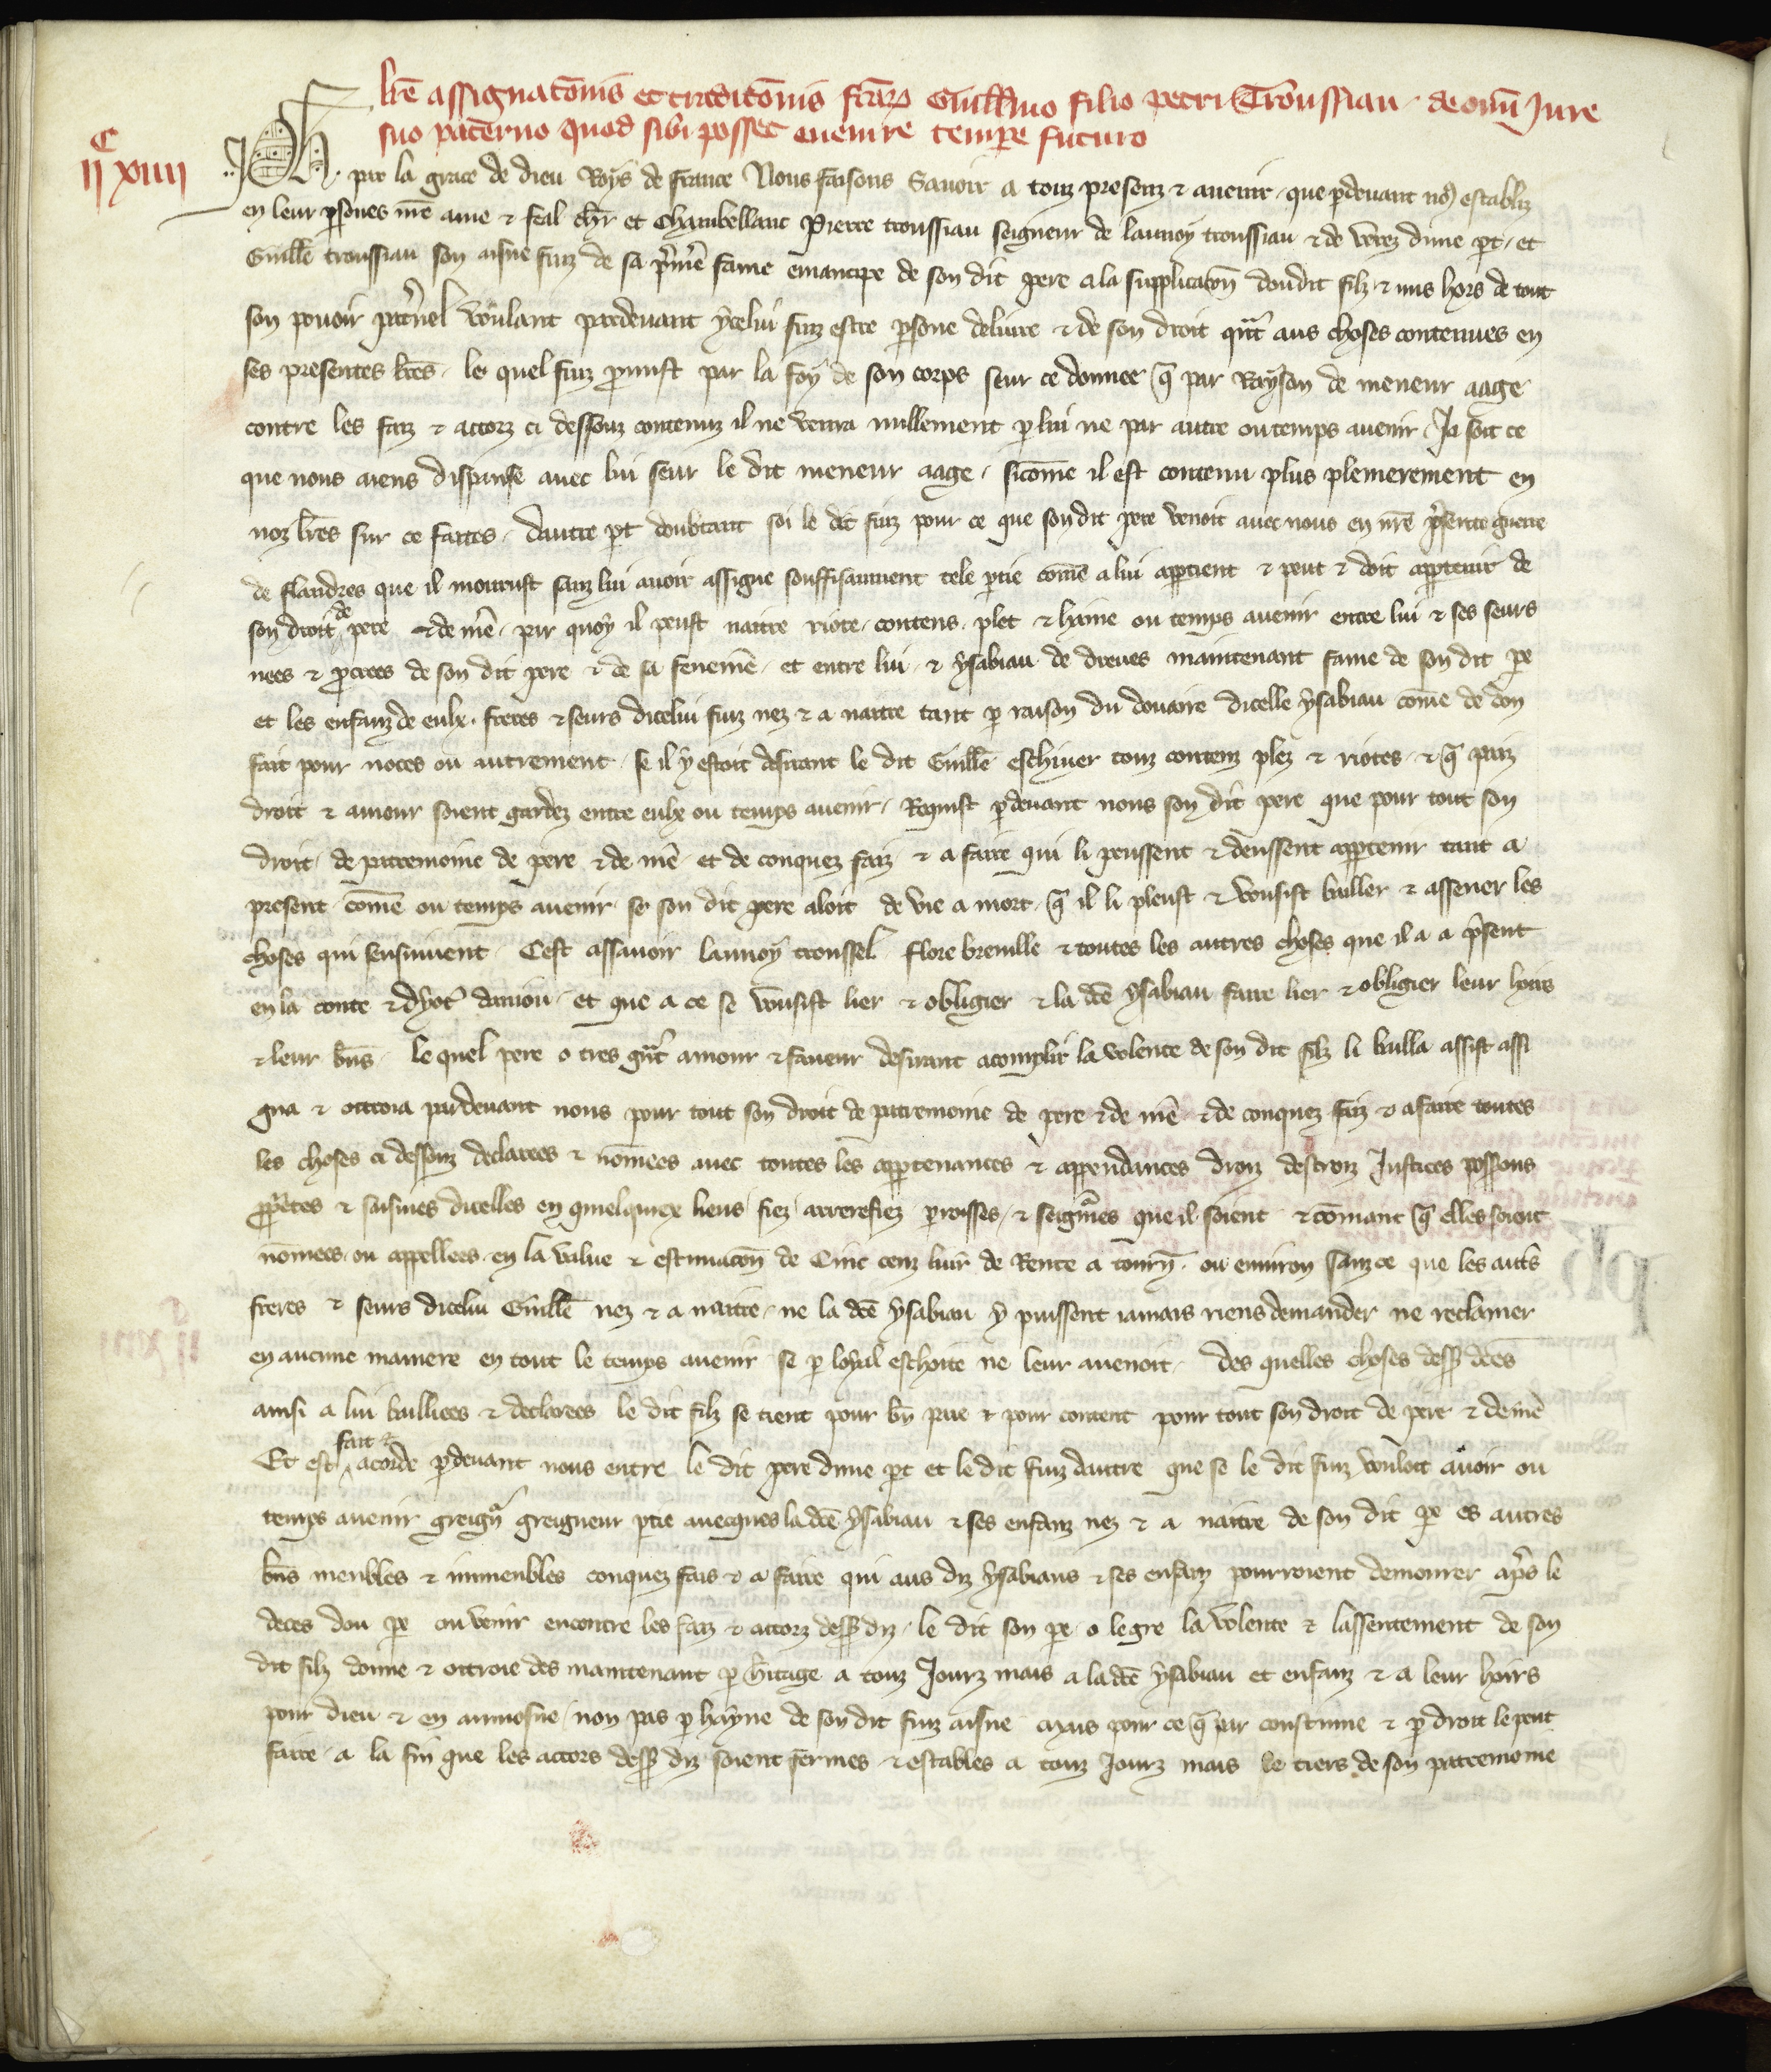 lre assignatonis et traditonis ftar Guillmo filio petri Troussiau · de omi Jure
suo paterno quod sibi posset evenire tempore futuro
c
ii xiiii
Ph. par la grace de dieu Roys de france Nous faisons Savoir a touz presenz & avenir · que pdevant nos establiz
en leur psones nre ame & feal chr et Chambellanc Pierre troussiau seigneur de launoy troussiau & de verez dune pt · et
Guille troussiau son aisne fiuz de sa pmie fame emancipe de son dit pere a la supplicaton doudit filz & mis hors de tout
son povoir paternel voulant pardevant ycelui fiuz estre psone delivre & de son droit qnt aus choses contenues en
ses presentes lres · le quel fiuz pmist par la foy de son corps seur ce donnee q par Rayson de meneur aage
contre les faiz & accorz ci dessouz contenuz il ne venra nullement p lui ne par autre ou temps avenir · Ja soit ce
que nous aiens dispanse avec lui seur le dit meneur aage · sicome il est contenu plus plenierement en
noz lres sur ce faites · dautre pt doubtant soi le dit fiuz pour ce que sondit pere venoit avec nous en nre psente guerre
de flandres que il mourust sanz lui avoir assigne souffisanment tele ptie come a lui apptient & peut & doit apptenir de
son droit de pere & de me · par quoy il peust naitre riote · contens · plet & haine ou temps avenir entre lui & ses seurs
nees & pcrees de son dit pere & de sa feue me · et entre lui & ysabiau de dreues maintenant fame de son dit pe
et les enfanz de eulx · freres & seurs dicelui fiuz nez & a naitre tant p raison du douaire dicelle ysabiau come de don
fait pour noces ou autrement · se il y estoit desirant le dit Guille eschiver touz contenz plez & riotes · & q paiz
droit & amour soient gardez entre eulx ou temps avenir · Requist pdevant nous son dit pere que pour tout son
droit · de patremoine de pere & de me · et de conquez faiz & a faire qui li peussent & deussent apptenir tant a
present come ou temps avenir · se son dit pere aloit de vie a mort · q il li pleust & vousist baller & assener les
choses qui sensuivent · Cest assavoir launoy troussel · flore breuille & toutes les autres choses que il a a psent
en la conte & dyoc danjou · et que a ce se vousist lier & obligier & la dce ysabiau faire lier & obligier leur hoirs
& leur bns · le quel pere o tres gnt amour & faveur desirant acomplir la volente de son dit filz li bailla assist assi
gna & ottroia pardevant nous pour tout son droit de patremoine de pere & de me & de conquez faiz & a faire toutes
les choses ci dessouz declarees & nomees avec toutes les apptenances & appendances droiz destroiz Justices possons
pprietes & saisines dicelles en quelquiex lieus fiez arrerefiez proisses · & seignies que il soient & comant q elles soient
nomees ou appellees · en la value & estimacon de Cinc cenz livr de Rente a tourn · ou environ sanz ce que les autes
freres & seurs dicelui Guille nez & a naitre · ne la dce ysabiau y puissent jamais riens demander ne reclamer
en aucune maniere en tout le temps avenir se p loyal eschoite ne leur avenoit · des quelles choses dess dces
ainsi a lui baillees & declarees le dit filz se tient pour bn paie & pour content pour tout son droit de pere & de me
Et est fait & acorde pdevant nous entre le dit pere dune pt et le dit fiuz dautre que se le dit fiuz vouloit avoir ou
temps avenir greign greigneur ptie avecques la dce ysabiau & ses enfanz nez & a naitre de son dit pe es autres
bns meubles & inmeubles conquez fais & a faire qui aus diz ysabiaus & ses enfanz pourroient demourer aps le
deces dou pe ou venir encontre les faiz & accorz dess diz · le dit son pe · o le gre la volente & lassentement de son
dit filz donne & ottroie des maintenant p hitage a touz Jourz mais a la dce ysabiau et enfanz & a leur hoirs
pour dieu & en aumosne · non pas p hayne de son dit fiuz aisne mais pour ce q par coustume & p droit le peut
faire · a la fin que les accors dess diz soient fermes & estables a touz Jourz mais le tiers de son patremoine